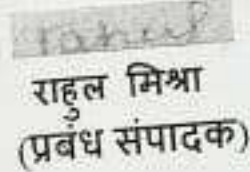 राहुल मिश्रा
(प्रबंध संपादक)